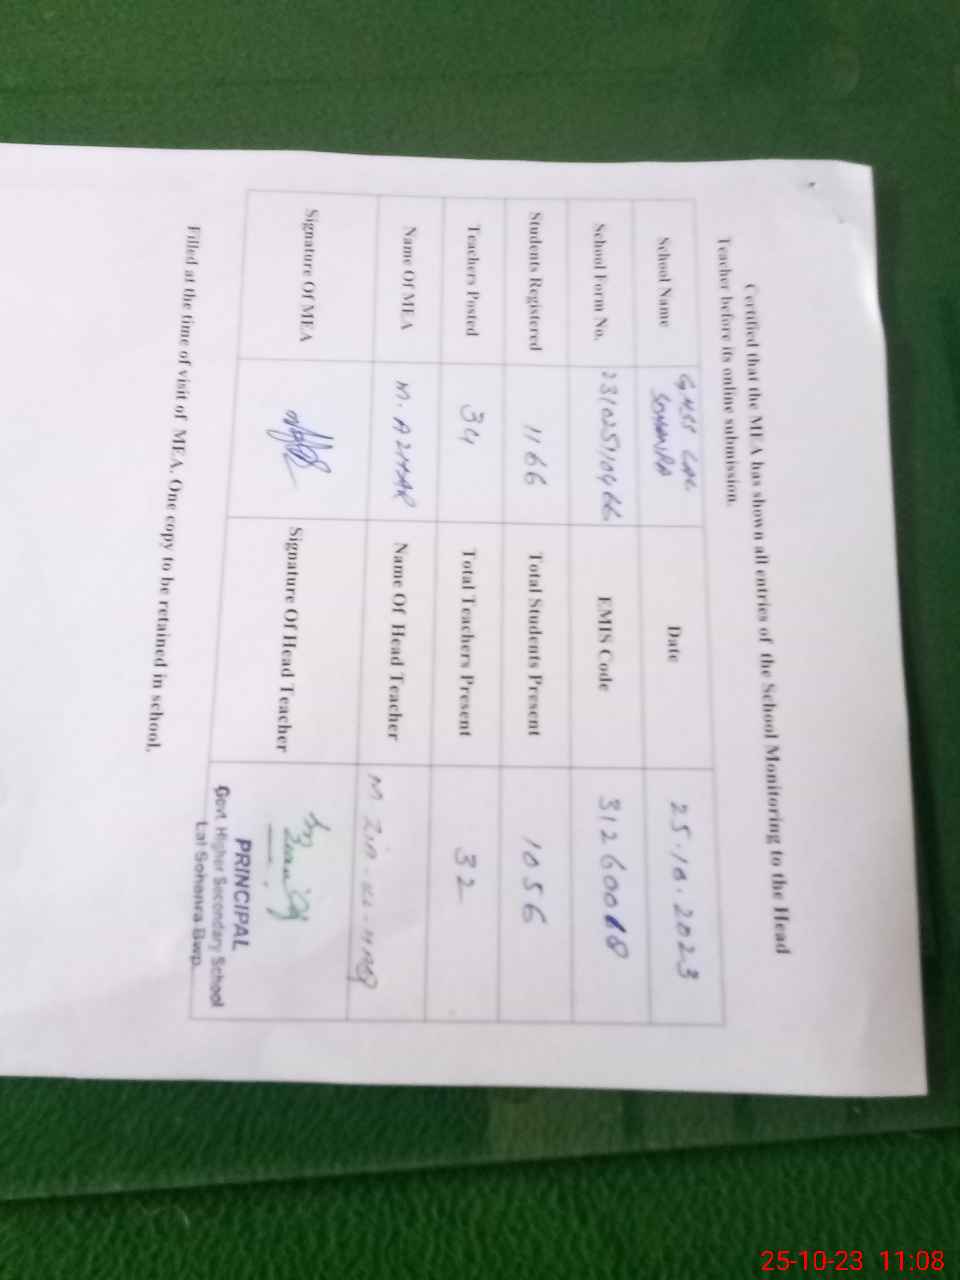 Certified that the MEA has shown all entries of the School Monitoring to the Head
Teacher before its online submission.
School Name GHSS LAL SOHANRA Date 25.10.2023
School Form No. 231025110466 EMIS Code 31260018
Students Registered 1166 Total Students Present 1056
Teachers Posted 34 Total Teachers Present 32
Name Of MEA M. AZHAR Name Of Head Teacher M ZIA-UL-HAQ
Signature Of MEA Signature Of Head Teacher
PRINCIPAL
Govt Higher Secondary School
Lal Sohanra Bwp.
Filled at the time of visit of MEA. One copy to be retained in school.
25-10-23 11:08